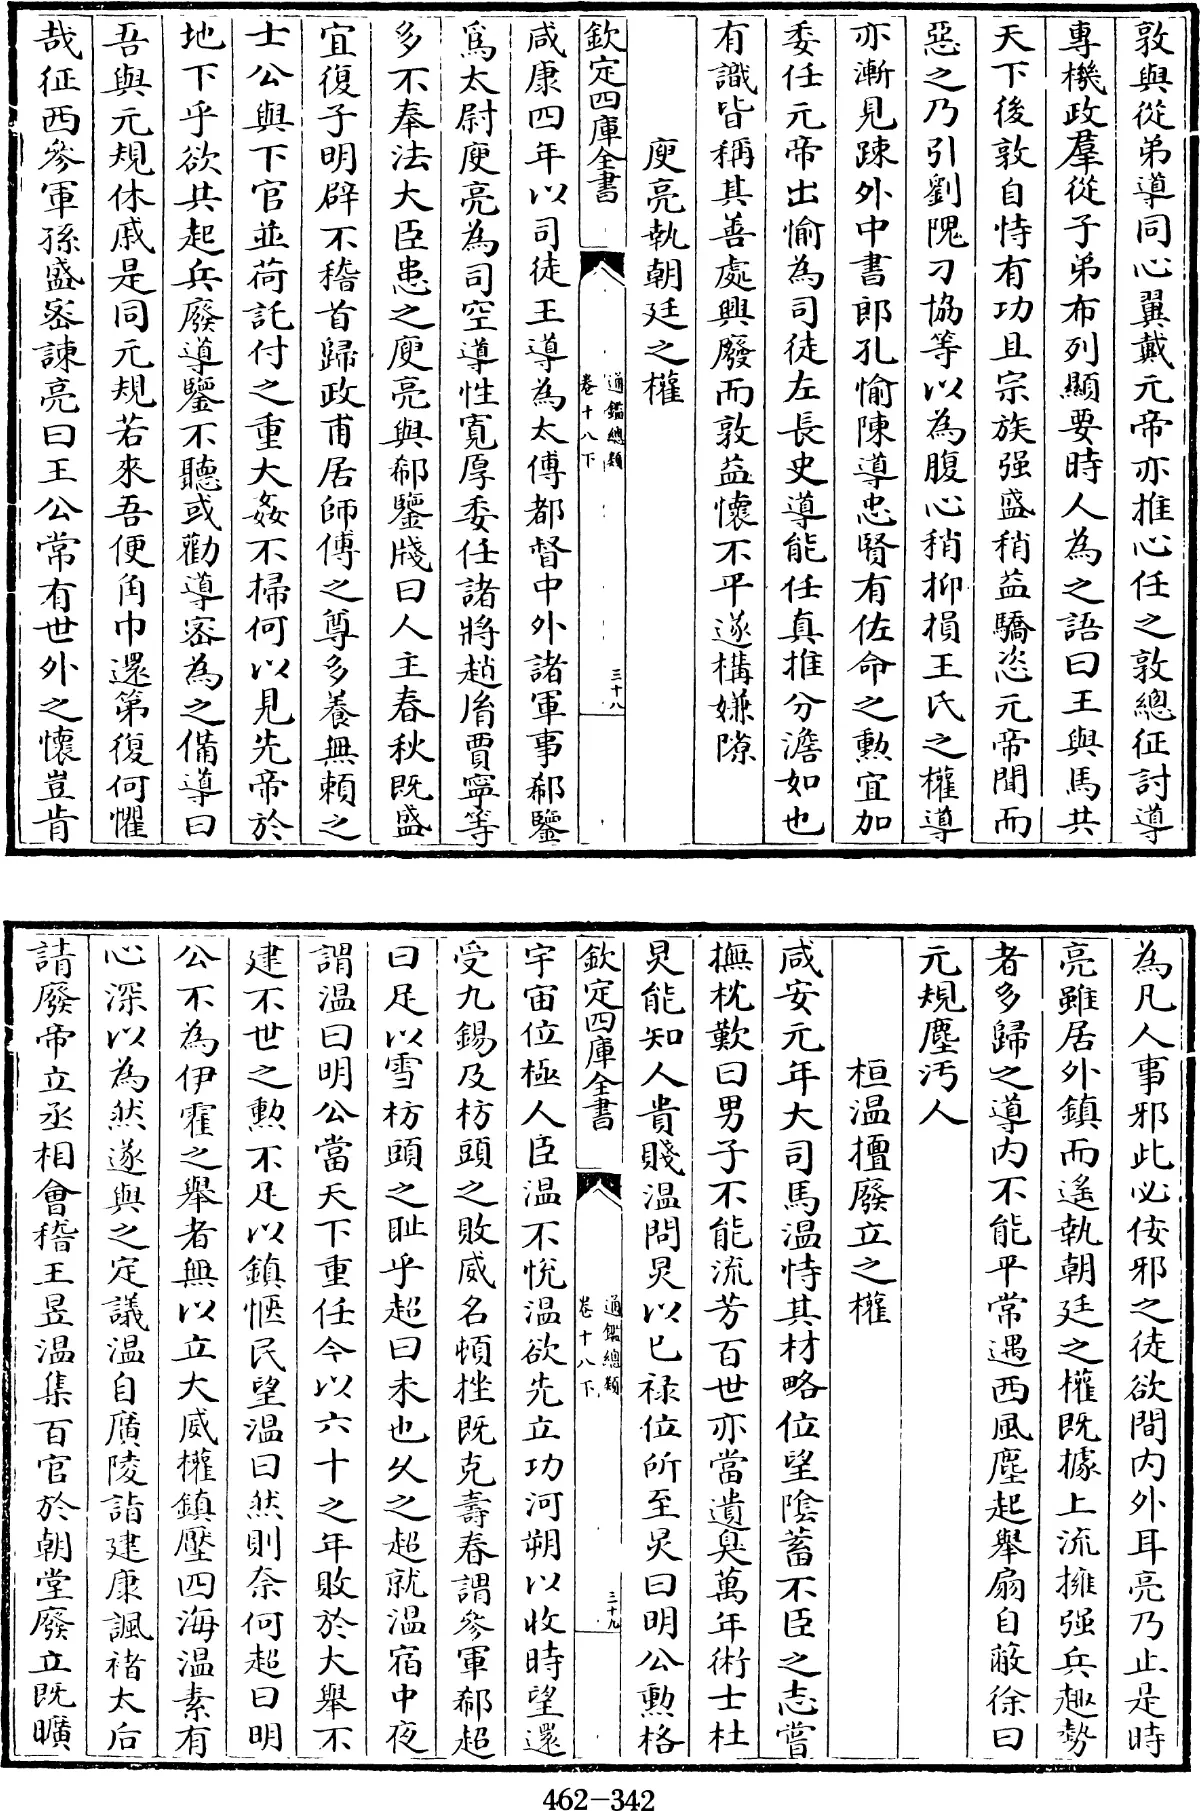 敦與從弟導同心翼戴元帝亦推心任之敦總征討導
專機政羣從子弟布列顯要時人為之語曰王與馬共
天下後敦自恃有功且宗族强盛稍益驕恣元帝聞而
惡之乃引劉隗刁協等以為腹心稍抑損王氏之權導
亦漸見踈外中書郎孔愉陳導忠賢有佐命之勲宜加
委任元帝出愉為司徒左長史導能任真推分澹如也
有識皆稱其善處興廢而敦益懷不平遂構嫌隙
庾亮執朝廷之權
欽定四庫全書
通鑑總類
卷十八下
三十八
咸康四年以司徒王導為太傅都督中外諸軍事郗鑒
爲太尉庾亮為司空導性寛厚委任諸將趙胤賈寧等
多不奉法大臣患之庾亮與郗鑒牋曰人主春秋既盛
宜復子明辟不稽首歸政甫居師傅之尊多養無賴之
士公與下官並荷託付之重大姦不掃何以見先帝於
地下乎欲共起兵廢導鑒不聽或勸導密為之備導曰
吾與元規休戚是同元規若來吾便角巾還第復何懼
哉征西參軍孫盛密諫亮曰王公常有世外之懷豈肯
為凡人事邪此必佞邪之徒欲間内外耳亮乃止是時
亮雖居外鎮而遙執朝廷之權既據上流擁强兵趣勢
者多歸之導内不能平常遇西風塵起舉扇自蔽徐曰
元規塵汚人
桓温擅廢立之權
咸安元年大司馬温恃其材略位望陰蓄不臣之志嘗
撫枕歎曰男子不能流芳百世亦當遺臭萬年術士杜
炅能知人貴賤温問炅以已禄位所至炅曰明公勲格
欽定四庫全書
通鑑總類
卷十八下
三十九
宇宙位極人臣温不悦温欲先立功河朔以收時望還
受九錫及枋頭之敗威名頓挫既克壽春謂參軍郗超
曰足以雪枋頭之恥乎超曰未也乆之超就温宿中夜
謂温曰明公當天下重任今以六十之年敗於大舉不
建不世之勲不足以鎮愜民望温曰然則奈何超曰明
公不為伊霍之舉者無以立大威權鎮壓四海温素有
心深以為然遂與之定議温自廣陵詣建康諷褚太后
請廢帝立丞相會稽王昱温集百官於朝堂廢立既曠
462-342